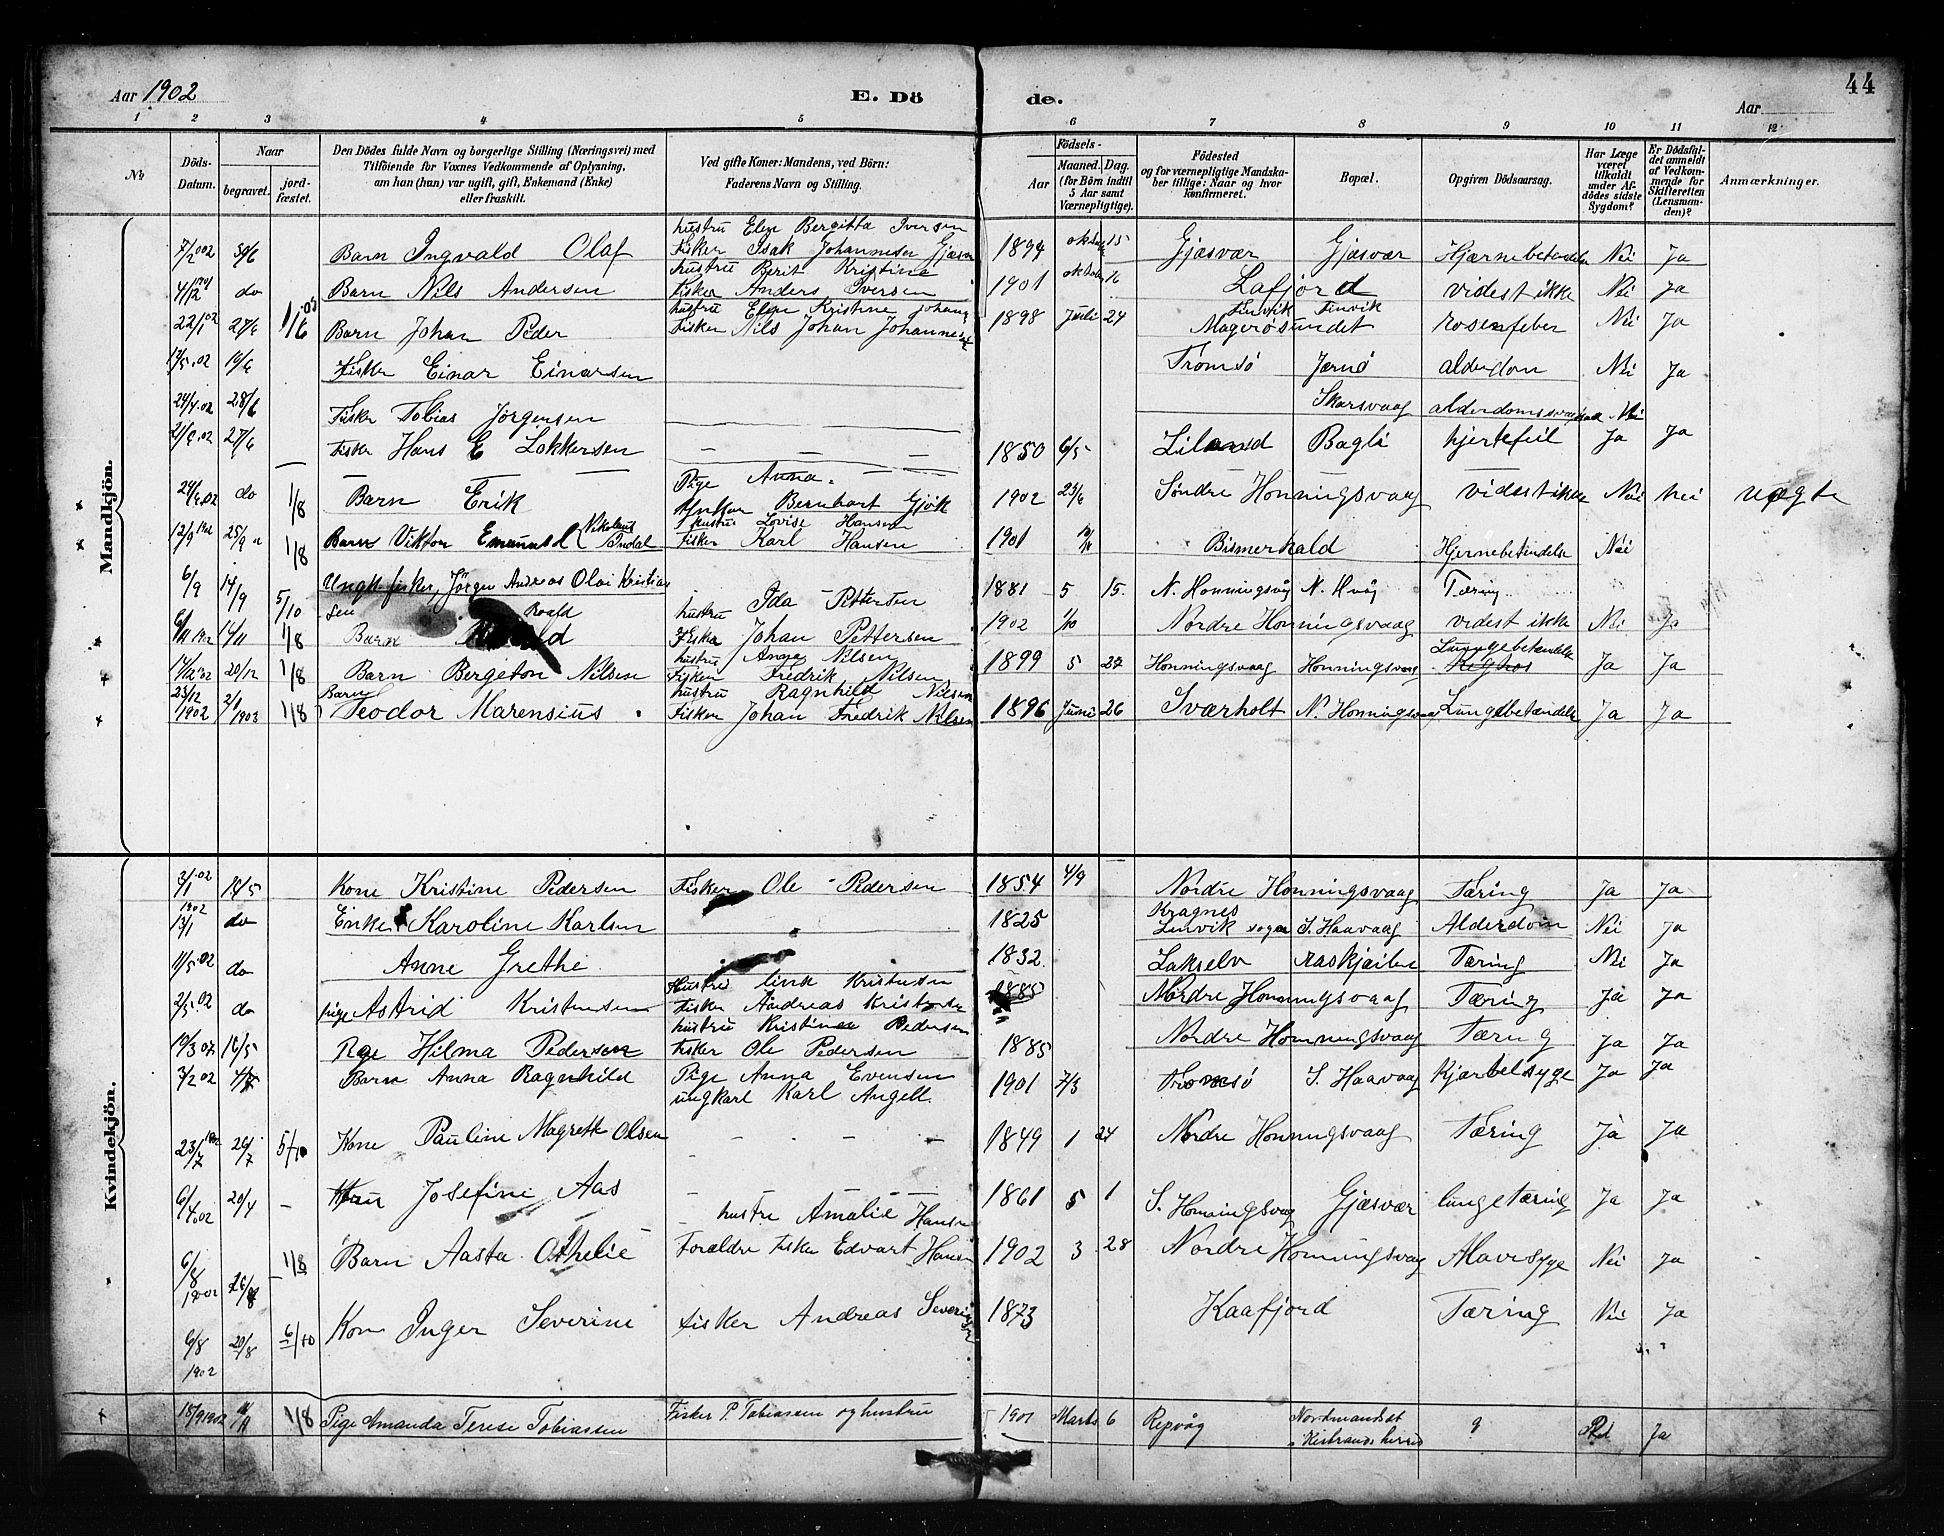 Aar 1902
E. Dö
de.
Aar
44
1 2 3 4 5 6 7 8 9 10 11 12
No
Döds-
Datum.
Naar
begravet.
jord-
fæstet.
Den Dödes fulde Navn og borgerlige Stilling (Næringsvei) med
Tilföiende for Voxnes Vedkommende af Oplysning,
am han (hun) var ugift, gift, Enkemand (Enke)
eller fraskilt.
Ved gifte Koner: Mandens, ved Börn:
Faderens Navn og Stilling.
Födsels-
Aar
Maaned. Dag.
(for Börn indtil
5 Aar samt
Værnepligtige).
Födested
og for værnepligtige Mandska-
ber tillige: Naar og hvor
konfirmeret.
Bopæl.
Opgiven Dödsaarsag.
Har Læge
været
tilkaldt
under Af-
dödes sidste
Sygdom?
Er Dödsfal-
det anmeldt
af Vedkom-
mende for
Skifteretten
(Lensman-
den)?
Anmærkninger.
Mandkjön.
hustru Elen Bergitta Iversen
7/2 02 30/6 Barn Ingvald Olaf Fisker Isak Johannesen Gjæsvær 1894 oktober 15 Gjæsvær Gjæsvær Hjærnebetendelse Nei Ja
hustru Berit Kristine
4/12 1901 do Barn Nils Andersen Fisker Anders Iversen 1901 oktober 16 Lafjord videst ikke Nei Ja
hustru Elen Kristine Johans
22/1 02 27/6 1/6 03 Barn Johan Peder Fisker Nils Johan Johannesen 1898 Juli 24 Finvik Finvik
Magerösundet rosenfeber Nei Ja
19/6 Fisker Einar Einarsen Tromsö Jernö alderdom Nei Ja
24/4 02 28/6 Fisker Tobias Jörgensen Skarsvaag Nei
27/6 Fisker Hans E Lokkersen 1850 6/5 Liland Bagli hjertefeil Ja Ja
Pige Anna
do 1/8 Barn Erik Ynkar Bernhart Gjök 1902 23/6 Söndre Honningsvaag videst ikke Nei Nei uægte
hustru Lovise Hansen
12/9 25/9 1/8 Barn Viktor Emanuel (Nikolaus Fisker Karl Hansen 1901 Hjernebetendelse Nei
6/9 14/9 5/10 Ungk. fisker, Jörgen Andreas Olai Kristian
sen 1881 5 15. N. Honningsvåg N. Hvåg Tæring
hustru Ida Pettersen
6/11 14/11 1/8 Barn Roald Fisker Johan Pettersen 1902 1/10 Nordre Honningsvaag videst ikke Nei Ja
hustru Anna Nilsen
20/12 1/8 Barn Bergeton Nilsen Fisker Fredrik Nilsen 1899 5 27 Honningsvaag Honningsvaag Lungebetendelse Ja Ja
hustru Ragnhild Nilsen
23/12 1902 2/1 1903 1/8 Barn Teodor Marensius Fisker Johan Fredrik Nilsen 1896 Juni 26 Sværholt N. Honningsvaag Lungebetændelse Ja Ja
Kvindekjön.
3/1 02 14/5 Kone Kristine Pedersen Fisker Ole Pedersen 1854 4/9 Nordre Honningsvaag Tæring Ja Ja
1902
13/1 do Enke Karoline Karlsen 1825 Kragnes
Lenvik sogn S. Haavaag Alderdom Nei Ja
11/5 02 do Anne Grethe 1832 Lakselv Tæring Nei Ja
Hustru Kristensen
2/5 02 do Pige Astrid Kristensen Fisker Andreas Kristensen 1885 Nordre Honningsvaag Tæring Ja Ja
hustru Kristine Pedersen
19/3 02 16/5 Pige Hilma Pedersen Fisker Ole Pedersen 1885 Nordre Honningsvaag Tæring Ja Ja
3/2 02 Barn Anna Ragnhild Pige Anna Evensen
ungkarl Karl Angell 1901 7/3 Tromsö S. Haavaag Kjærtelsyge Ja Ja
23/7 26/7 5/10 Kone Pauline Magrete Olsen 1849 1 24 Nordre Honningsvaag Tæring Ja Ja
6/4 02 20/4 Josefine Aas 1861 5 1 S. Honningsvaag Gjæsvær lungetæring Ja Ja
hustru Amalie Hansen
6/8 1902 26/8 1/8 Barn Aasta Othelie Forældre Fisker Edvart Hansen 1902 3 28 Nordre Honningsvaag Mavesyge Nei Ja
6/8 1902 20/8 6/10 Kone Inger Severine Fisker Andreas Severinsen 1873 Kaafjord Tæring Nei Ja
15/9 1902 1/8 Pige Amanda Terese Tobiassen Fisker P. Tobiassen og hustru 1901 Marts 6 Repvåg Nordmandset
i Kistrands herred ? Ja